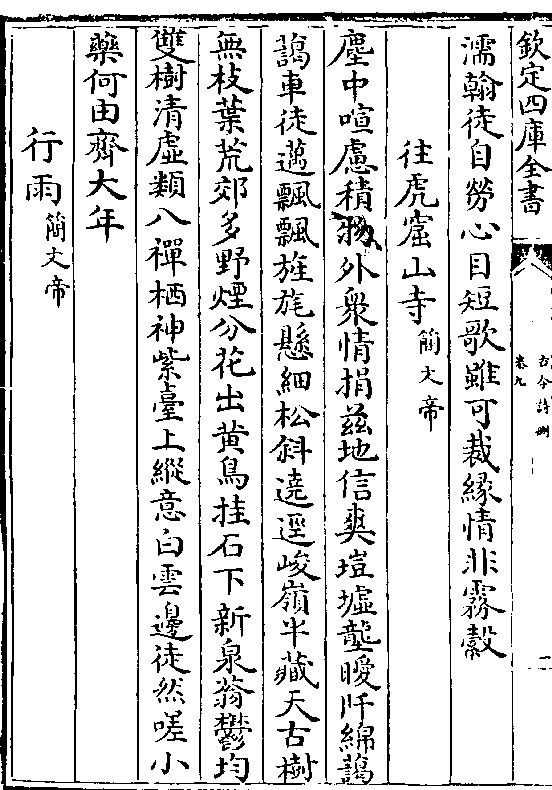 欽定四庫全書
古今詩刪
卷九
濡翰徒自勞心目短歌雖可裁緣情非霧縠
往虎窟山寺簡文帝
塵中喧慮積物外衆情捐茲地信爽塏墟壟曖阡綿藹
藹車徒邁飄飄旌旄懸細松斜遶逕峻嶺半藏天古樹
無枝葉荒郊多野煙分花出黃鳥挂石下新泉蓊鬱均
雙樹清虛類八禪栖神紫臺上縱意白雲邊徒然嗟小
藥何由齊大年
行雨簡文帝